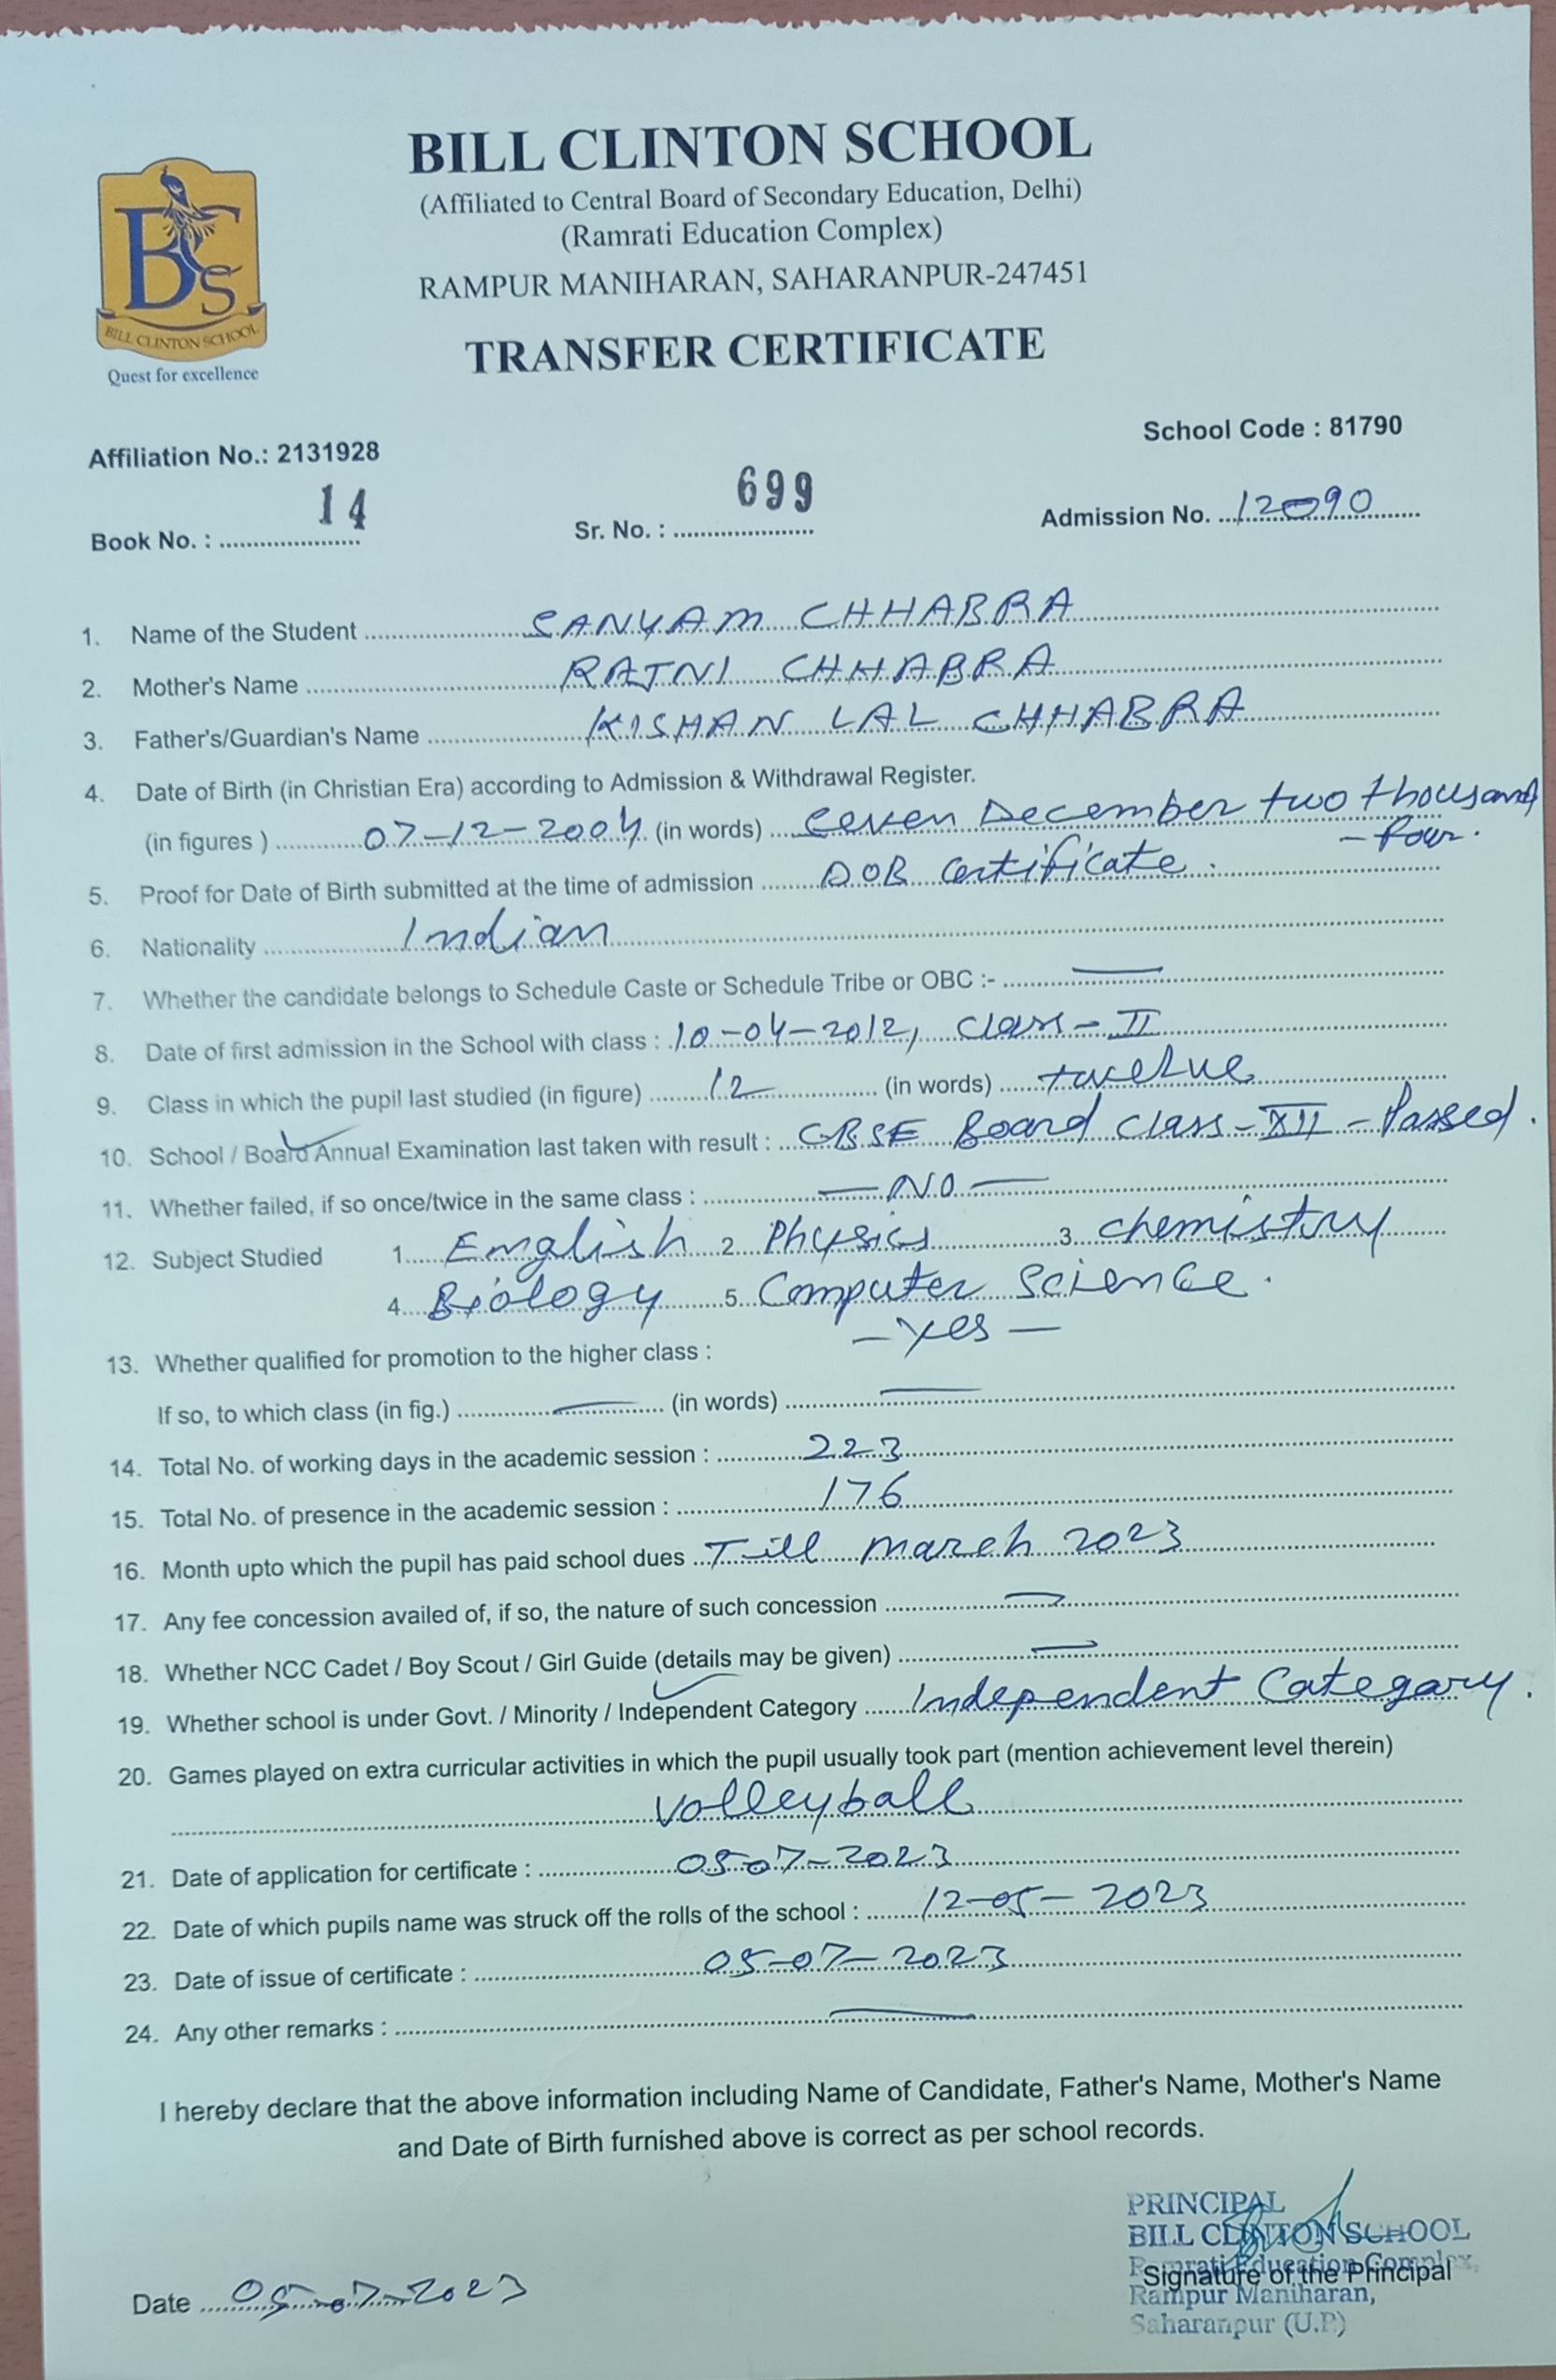 BILL CLINTON SCHOOL
(Affiliated to Central Board of Secondary Education, Delhi)
(Ramrati Education Complex)
RAMPUR MANIHARAN, SAHARANPUR-247451
TRANSFER CERTIFICATE
BCS
BILL CLINTON SCHOOL
Quest for excellence
Affiliation No.: 2131928 School Code : 81790
Book No. : 14 Sr. No. : 699 Admission No. 12090
1. Name of the Student SANYAM CHHABRA
2. Mother's Name RAJNI CHHABRA
3. Father's/Guardian's Name KISHAN LAL CHHABRA
4. Date of Birth (in Christian Era) according to Admission & Withdrawal Register.
(in figures ) 07-12-2004 (in words) Seven December two thousand
- four.
5. Proof for Date of Birth submitted at the time of admission DOB Certificate.
6. Nationality Indian
7. Whether the candidate belongs to Schedule Caste or Schedule Tribe or OBC :- —
8. Date of first admission in the School with class : 10-04-2012, Class - II
9. Class in which the pupil last studied (in figure) 12 (in words) twelve
10. School / Board Annual Examination last taken with result : CBSE Board Class - XII - Passed.
11. Whether failed, if so once/twice in the same class : — NO —
12. Subject Studied 1. English 2. Physics 3. Chemistry
4. Biology 5. Computer Science.
13. Whether qualified for promotion to the higher class : - Yes -
If so, to which class (in fig.) — (in words) —
14. Total No. of working days in the academic session : 223
15. Total No. of presence in the academic session : 176
16. Month upto which the pupil has paid school dues Till March 2023
17. Any fee concession availed of, if so, the nature of such concession —
18. Whether NCC Cadet / Boy Scout / Girl Guide (details may be given) —
19. Whether school is under Govt. / Minority / Independent Category Independent Categary.
20. Games played on extra curricular activities in which the pupil usually took part (mention achievement level therein)
Volleyball
21. Date of application for certificate : 05-07-2023
22. Date of which pupils name was struck off the rolls of the school : 12-05-2023
23. Date of issue of certificate : 05-07-2023
24. Any other remarks : —
I hereby declare that the above information including Name of Candidate, Father's Name, Mother's Name
and Date of Birth furnished above is correct as per school records.
PRINCIPAL
BILL CLINTON SCHOOL
Ramrati Education Complex,
Signature of the Principal
Rampur Maniharan,
Saharanpur (U.P.)
Date 05-07-2023